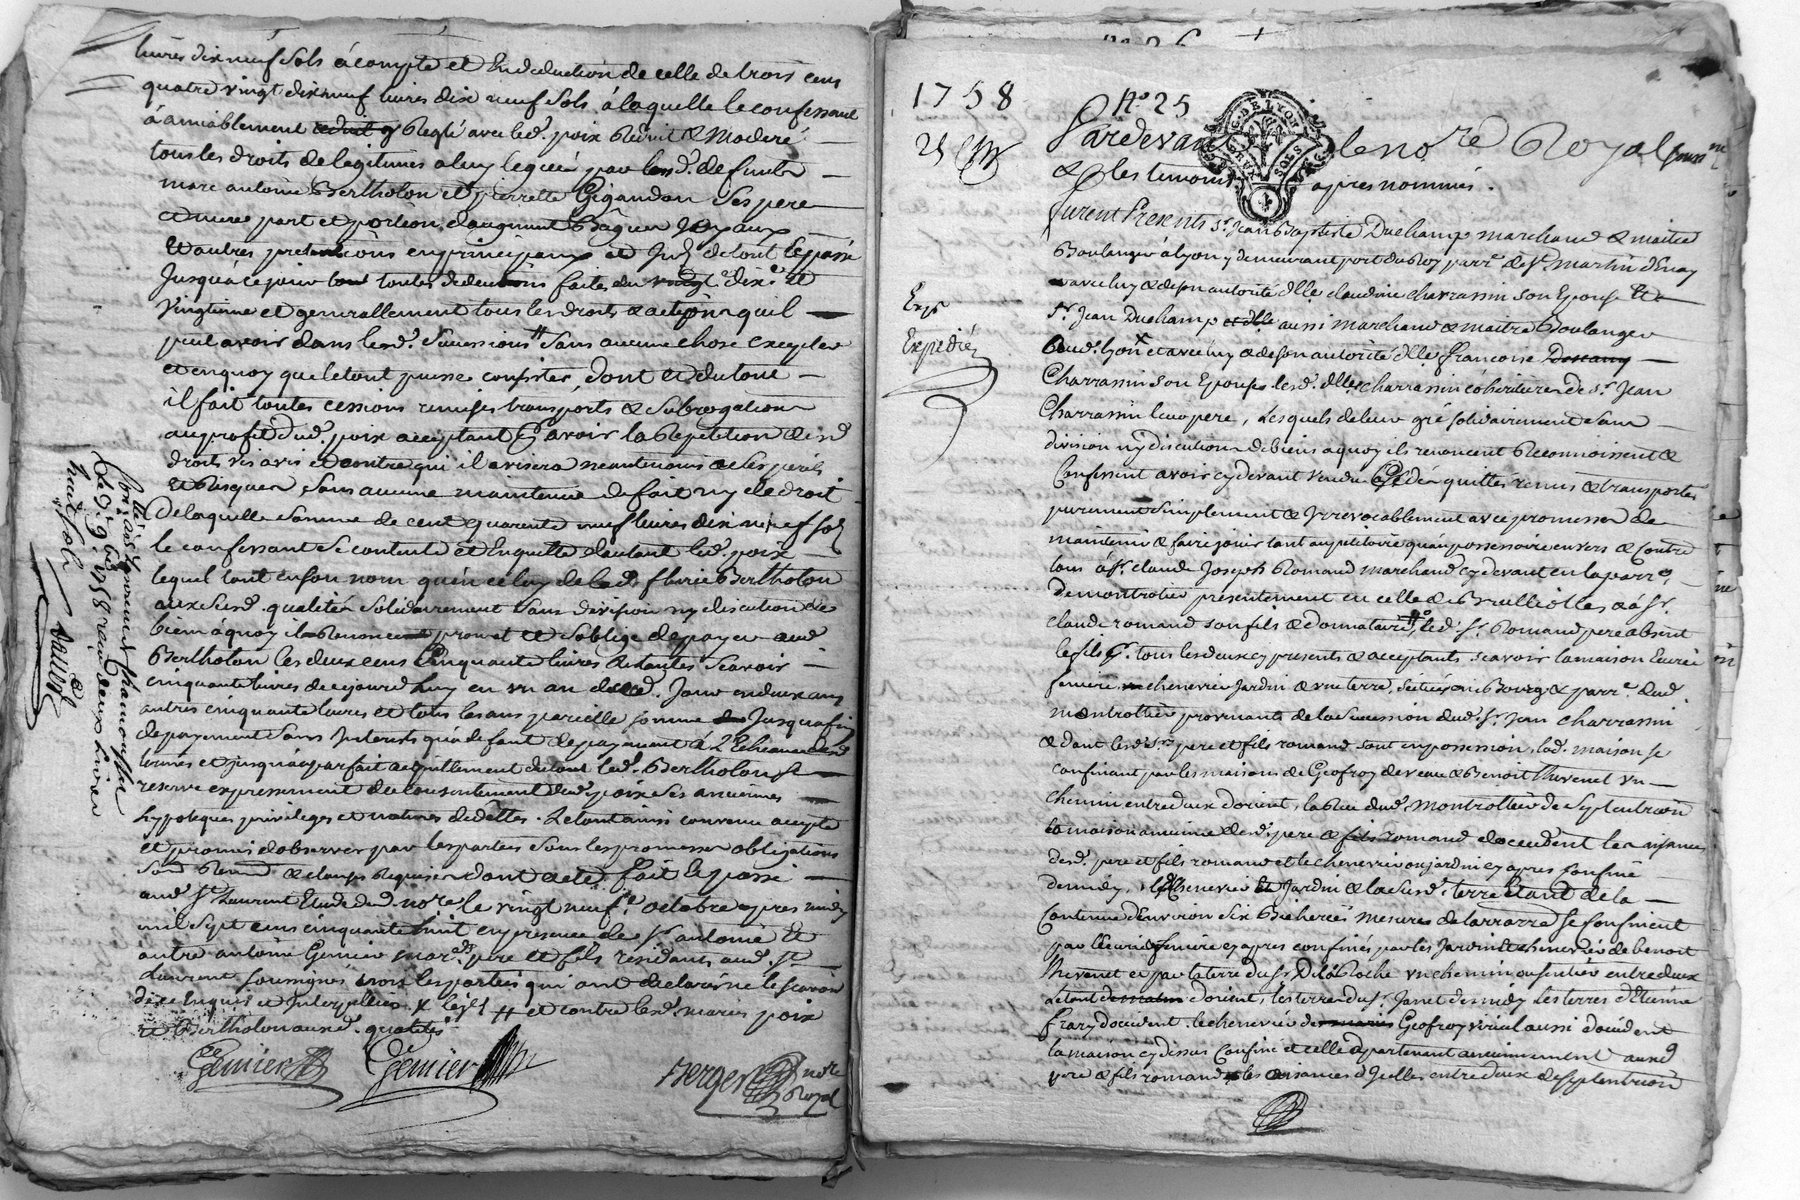 livres dix neuf sols à compte et En deduction de celle de trois cens
quatre vingt dix neuf livres dix neuf sols à laquelle le confessant
à amiablement reduit Reglé avec led. poix Reduit & Moderé
tous les droits de legitimes a luy legués par lesd. defunts
marc antoine Bertholon et pierrette Gigandon ses pere
et mere part et portion d'augment Bagues Joyaux
Et autres pretentions en principaux et de tout le passé
Jusqu'à ce jour tout toutes deductions faites du vingt dixe et
Vingtieme et generallement tous les droits & actions quil
peut avoir dans lesd. successions # sans aucune chose excepter
et en quoy quils tout puisse consister, dont et du tout
il fait toutes cessions remises transports & subrogations
au profit dud. poix acceptant avoir la Repetition desd
droits vis avis et contre qui il avisera neantmoins a ses perils
et Risques sans aucune maintenue de fait ny de droit
De laquelle somme de cent quarente neuf livres dix neuf sols
le confessant se contente et En quitte d'autant led. poix
lequel tant en son nom qu'en celuy de lad. fleurie Bertholon
auxsusd. qualités solidairement sans division ny discution de
biens à quoy il Renonce promet et s'oblige de payer aud
Bertholon les deux cens Cinquante livres Restantes scavoir
cinquante livres de ce jourd'huy en un an aud. Jour en deux ans
autres cinquante livres et tous les ans pareille somme Jusqu'a fin
de payement sans Interets qu'a defaut de payement à L'Echeance
termes et jusqu'a parfait acquittement du tout led. Bertholon se
reserve expressement du consentement dud. poix ses anciennes
hypoteques privileges et natures de dettes. Le tout ainsi convenu accepté
et promis d'observer par les parties sous les promesses obligations
Soum. Renon. & clauses Requises dont acte fait & passé
aud St. Laurent Etude dud. nore le vingt neufe octobre apres midy
mil sept cens cinquante huit en presence de Sr antoine Et
autre antoine Genier mar. pere et fils residants aud. St
Laurent soussignés non les parties qui ont declaré ne le scavoir
de ce Enquis et Interpellées # et contre lesd. mariés poix
et Bertholon auxd. qualités
Genier
Genier
Berger nore
Royal
Conllé à St laurent de chamousset
Le d. 9. 9bre 1758 reçu deux livres
huit sols
1758
No. 25
G. DE LYON
SOLS
Pardevant le nore Royal soussne
& les temoins apres nommés.
furent Presents Sr. Jean Baptiste Duchamp marchand & maitre
Boulanger à Lyon y demeurant port du Roy parr. de St. Martin d'Enay
avec luy & de son autorité dlle claudine charrassin son Epouse
Sr. Jean Duchamp et dlle aussi marchand & maitre Boulanger
aud. lyon et avec luy & de son autorité dlle francoise
Charrassin son Epouse lesd. dlles charrassin cohéritieres de Sr. Jean
Charrassin leur pere, Lesquels de leur gré solidairement sans
division ny discution de biens a quoy ils renoncent Reconnoissent &
Confessent avoir cy devant vendu Cedé quittés remis & transportés
purement simplement & Irrevocablement avec promesses de
maintenir & faire jouir tant au petitoire qu'au possessoire envers & contre
tous à Sr. claude Joseph Romand marchand cy devant en la parr.
de montrotier presentement en celle de Brullioles & à Sr.
claude romand son fils & donnataire, led. Sr. Romand pere absent
le fils tous les deux cy presents & acceptants, scavoir la maison Ecurie
feniere chenevier Jardin & une terre, scitués au Bourg & parr. dud
montrotier provenants de la succession dud. Sr. Jean charrassin
& dont lesd. Srs. pere et fils romand sont en possession, lad. maison se
confinant par les maisons de Geofroy deveau & Benoit thevenet un
chemin entre deux d'orient, la Rue dud. Montrottier de septentrion
la maison ancienne desd. pere & fils romand d'occident les aisances
desd. pere et fils romand et le chenevier ou jardin cy apres confiné
de midy, le Chenevier Et Jardin & la susd. terre Etant de la
Contenue d'environ six Bicherées mesures de larrarre se confinent
par lecurie feniere cy apres confinés par les Jardin et chenevier de benoit
thevenet et par la terre du Sr. De la Roche un chemin ou sentier entre deux
d'orient, les terres du Sr. Janet de midy les terres d'Etienne
frary d'occident. le chenevier de Geofroy vivial aussi d'occident
la maison cy dessus confiné et celle appartenant anciennement auxd
pere & fils romand les aisances d'Icelles entre deux de septentrion
Exps
Expediée